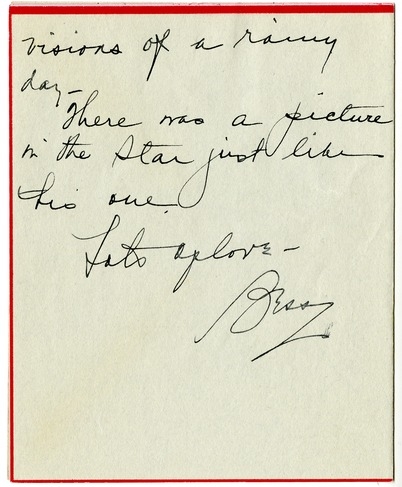 visions of a rainy
day—
There was a picture
in the Star just like
this one.
Lots of love—
Bess